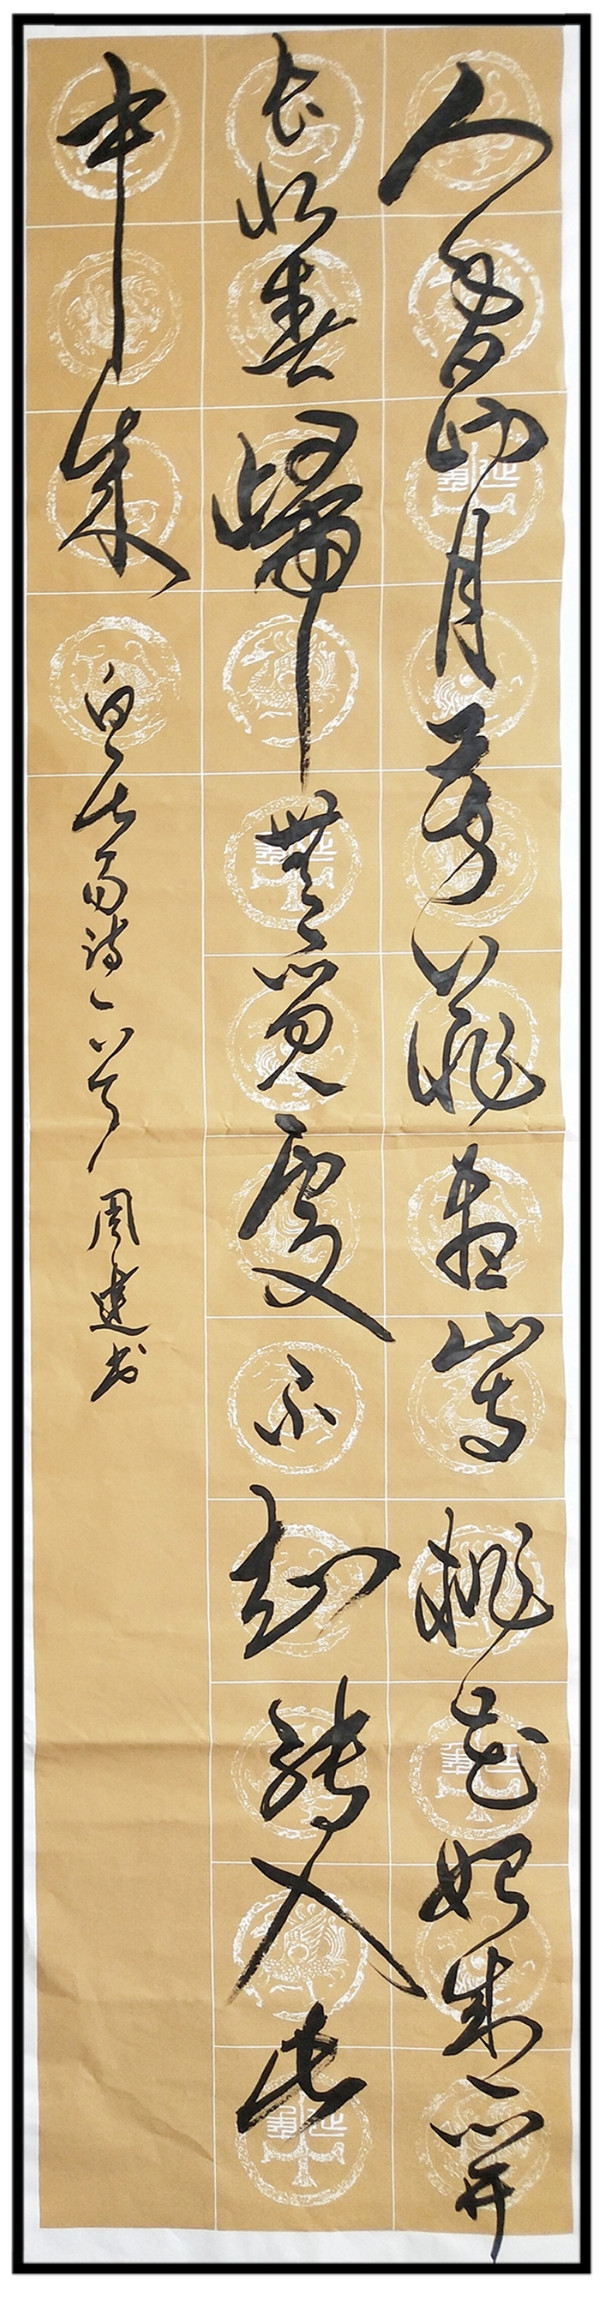 人間四月芳菲盡山寺桃花始盛開
長恨春歸無覓處不知轉入此
中來
白居易詩一首 周建书